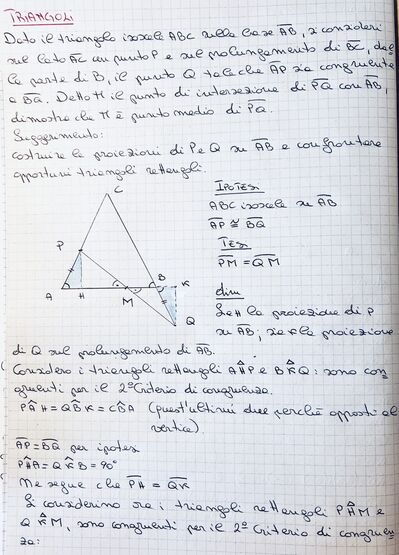 TRIANGOLI
Dato il triangolo isoscele ABC sulla base AB, si consideri
sul lato AC un punto P e sul prolungamento di BC, dal
la parte di B, il punto Q tale che AP sia congruente
a BQ. Detto M il punto di intersezione di PQ con AB,
dimostra che M è punto medio di PQ.
Suggerimento:
costruire le proiezioni di P e Q su AB e confrontare
opportuni triangoli rettangoli.
C
P
A
H
M
B
K
Q
IPOTESI
ABC isoscele su AB
AP ≅ BQ
TESI
PM = QM
dim
Sia H la proiezione di P
su AB; sia K la proiezione
di Q sul prolungamento di AB.
Considero i triangoli rettangoli AHP e BKQ: sono con
gruenti per il 2° Criterio di congruenza.
PÂH = QBK = CBA (quest'ultimi due perchè opposti al
vertice).
AP = BQ per ipotesi
PHA = QKB = 90°
Ne segue che PH = QK
Si considerino ora i triangoli rettangoli PHM e
QKM, sono congruenti per il 2° Criterio di congruen
za: